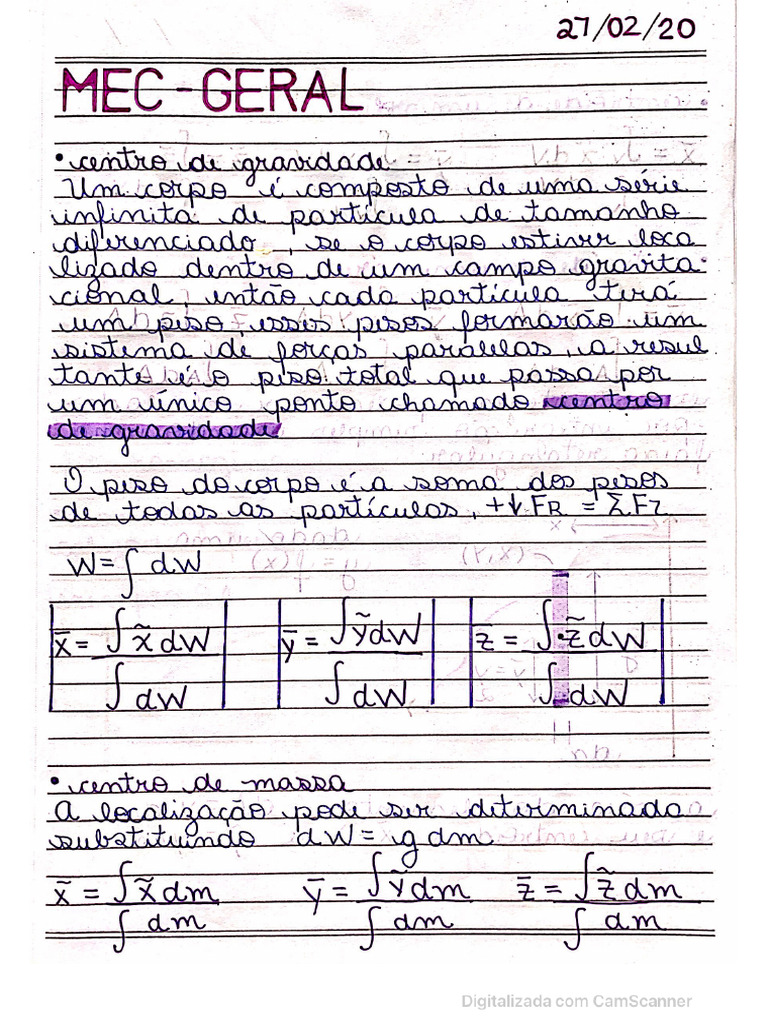 27/02/20
MEC-GERAL
• centro de gravidade
Um corpo é composto de uma série
infinita de partícula de tamanho
diferenciado, se o corpo estivrr loca
lizado dentro de um campo gravita-
cional, então cada partícula terá
um peso, esses pesos formarão um
sistema de forças paralelas, a resul
tante é o peso total que passa por
um único ponto chamado centro
de gravidade
O peso do corpo é a soma dos pesos
de todas as partículas, +↓ FR = ΣFz
W = ∫ dW
x̄ = ∫ x̃ dW / ∫ dW   ȳ = ∫ ỹ dW / ∫ dW   z̄ = ∫ z̃ dW / ∫ dW
• centro de massa
A localização pode ser determinada
substituindo dW = g dm
x̄ = ∫ x̃ dm / ∫ dm   ȳ = ∫ ỹ dm / ∫ dm   z̄ = ∫ z̃ dm / ∫ dm
Digitalizada com CamScanner